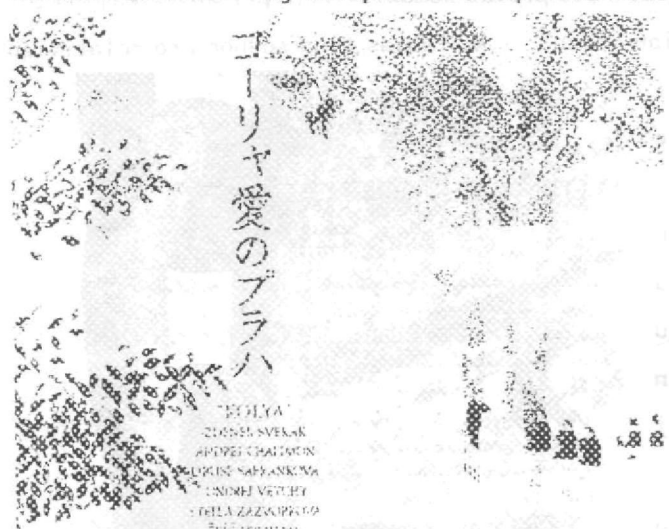 コーリャ愛のプラハ
"KOLYA"
ZDENEK SVERAK
ANDREI CHALIMON
LIBUSE SAFRANKOVA
ONDREJ VETCHY
STELLA ZAZVORKOVA